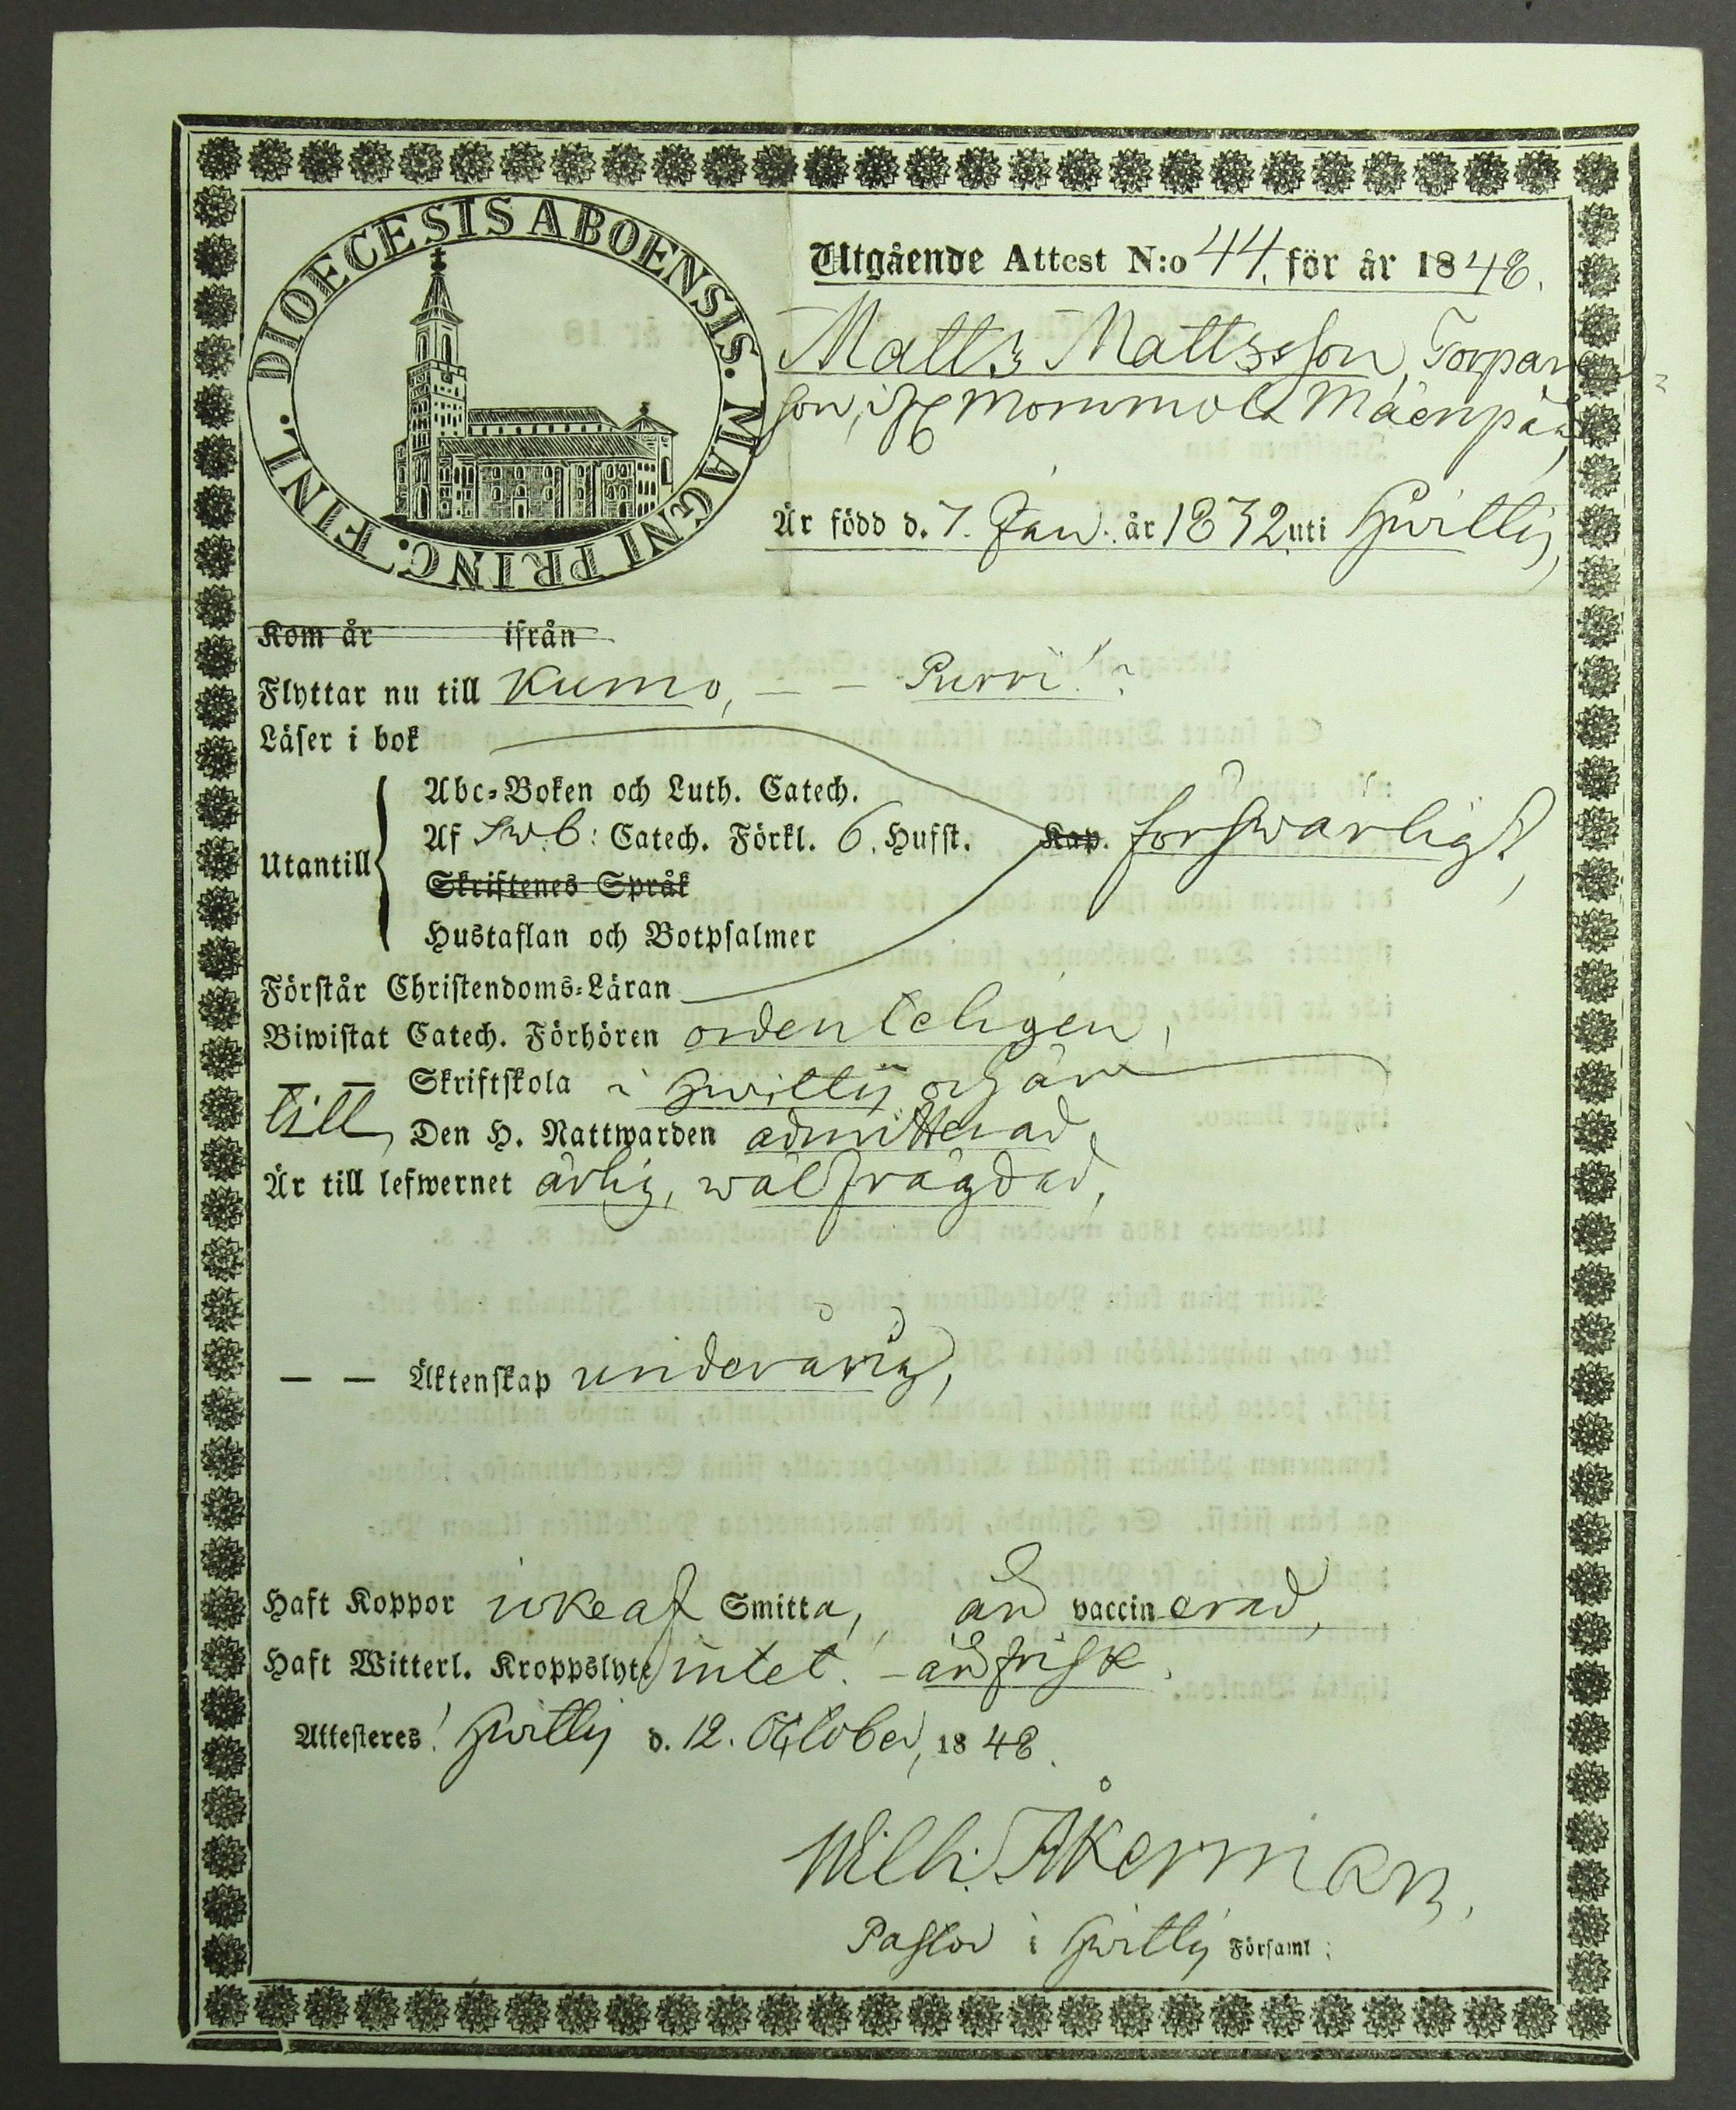 DIOECESIS ABOENSIS. MAGNI PRINC. FINL.
Utgående Attest N:o 44. för år 1848.
Matts Mattsson, Torpare
son, ifr Mommola Mäenpää,
Är född d. 7. Jan. år 1832 uti Hvittis,
Kom år ifrån
Flyttar nu till Kumo, — — Purri!
Läser i bok
Utantill
Abc-Boken och Luth. Catech.
Af Swb: Catech. Förkl. 6. Hufst. Kap. förswarligt,
Skriftenes Språk
Hustaflan och Botpsalmer
Förstår Christendoms-Läran
Biwistat Catech. Förhören ordenteligen,
— — Skriftskola i Hvittis och är
till Den H. Nattwarden admitterad,
Är till lefwernet ärlig, wäl frägdad,
— — Äktenskap underårig,
Haft Koppor icke af Smitta, är vaccinerad,
Haft Witterl. Kroppslyte intet. – är frisk.
Attesteres! Hvittis d. 12. October, 1848.
Wilh. Åkerman,
Pastor i Hvittis Församl: